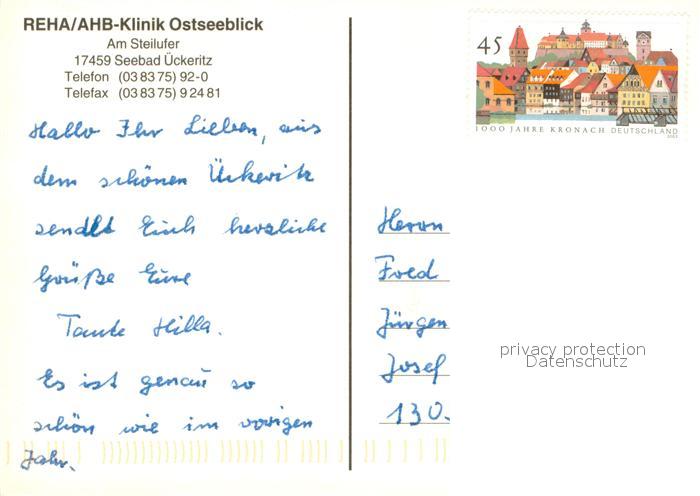 REHA/AHB-Klinik Ostseeblick
Am Steilufer
17459 Seebad Ückeritz
Telefon (03 83 75) 92-0
Telefax (03 83 75) 9 24 81
Hallo Ihr Lieben, aus
dem schönen Ückeritz
sendet Euch herzliche
Grüße Eure
Tante Hilla.
Es ist genau so
schön wie im vorigen
Jahr.
45
1000 JAHRE KRONACH DEUTSCHLAND
2003
Herrn
Fred
Jürgen
Josef
130.
privacy protection
Datenschutz